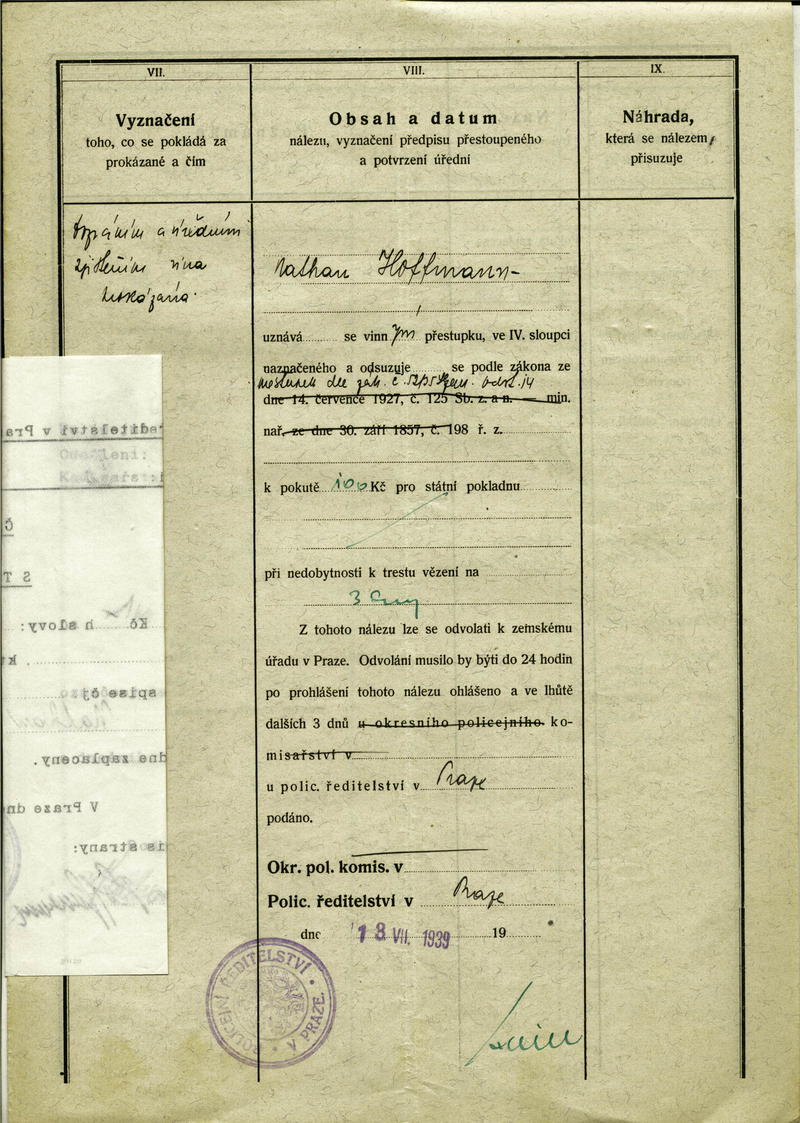 VII.
Vyznačení
toho, co se pokládá za
prokázané a čím
a
vina
VIII.
Obsah a datum
nálezu, vyznačení předpisu přestoupeného
a potvrzení úřední
Nathan Hoffmann-
uznává se vinn ým přestupku, ve IV. sloupci
naznačeného a odsuzuje se podle zákona ze
dle zák. č. 52/35
dne 14. července 1927, č. 125 Sb. z. a n. — min.
nař. ze dne 30. září 1857, č. 198 ř. z.
k pokutě 100 Kč pro státní pokladnu
při nedobytnosti k trestu vězení na
3 dny
Z tohoto nálezu lze se odvolati k zemskému
úřadu v Praze. Odvolání musilo by býti do 24 hodin
po prohlášení tohoto nálezu ohlášeno a ve lhůtě
dalších 3 dnů u okresního policejního ko-
misařství v
u polic. ředitelství v Praze
podáno.
Okr. pol. komis. v
Polic. ředitelství v Praze
dne 18 VII. 1939 19
POLICEJNÍ ŘEDITELSTVÍ V PRAZE
IX.
Náhrada,
která se nálezem
přisuzuje
ředitelství v Pra
Oddělení:
Kč h slovy:
spise čj
dne zaplaceny.
V Praze dn
is strany: